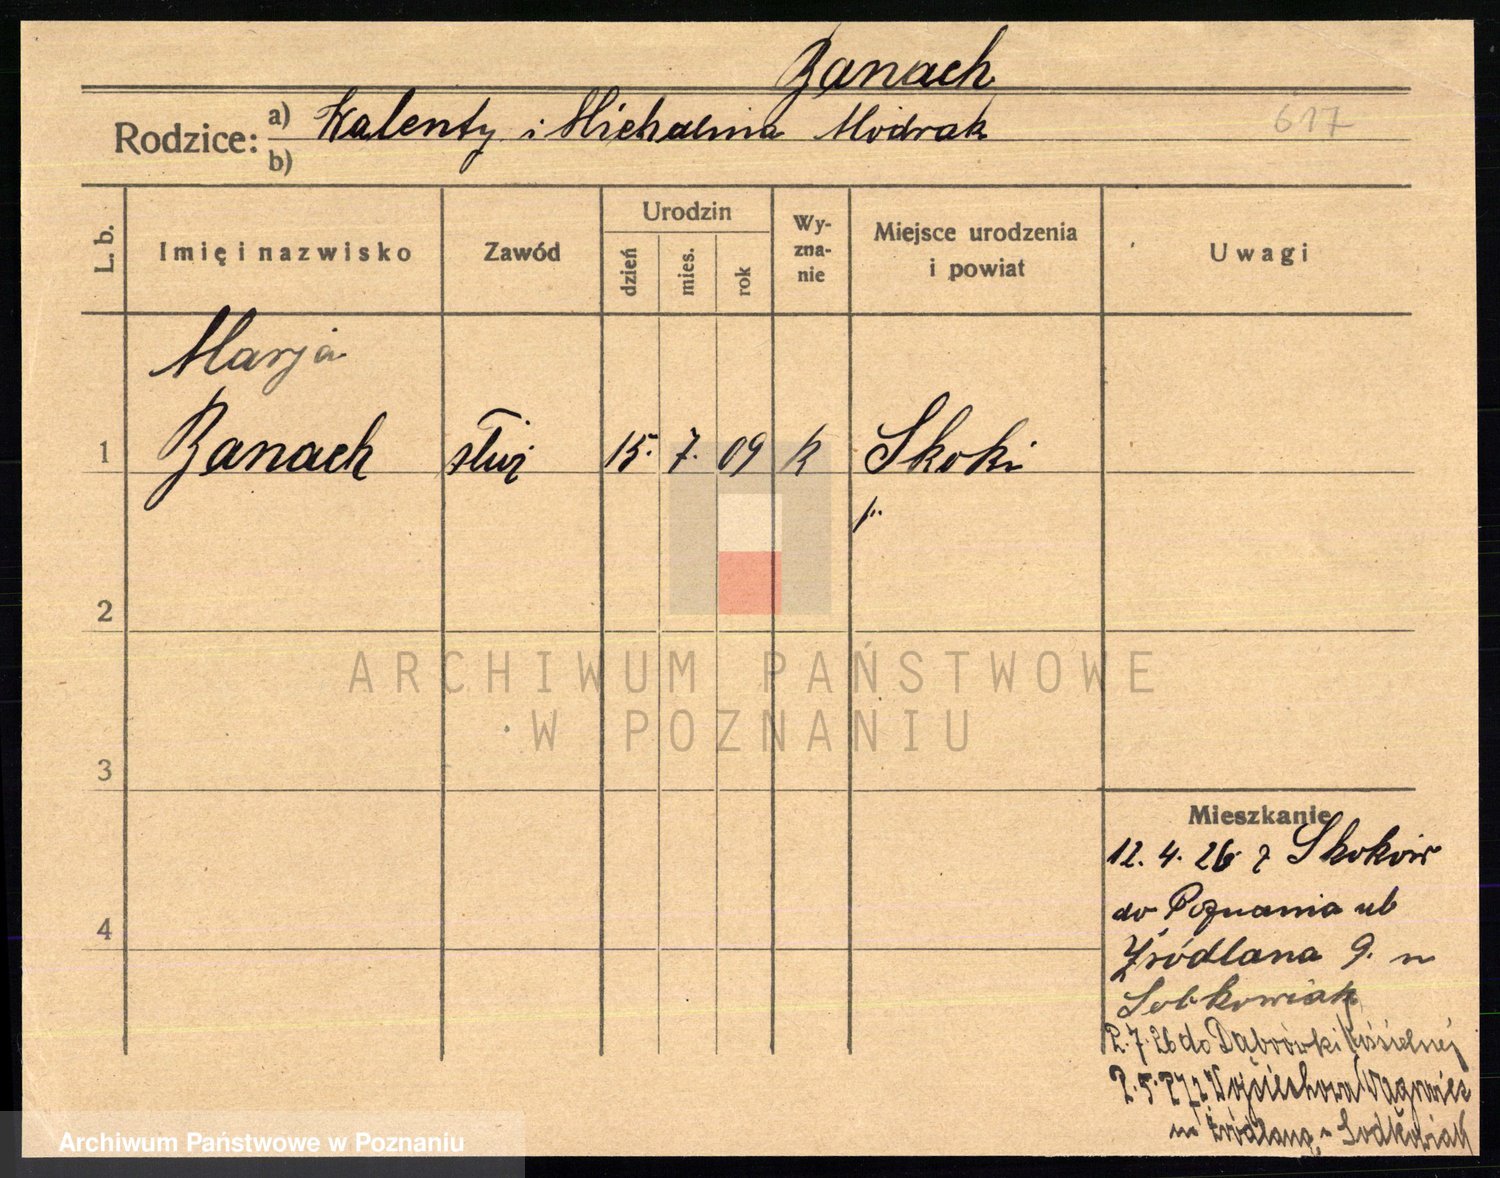 Banach
Rodzice: a) Walenty i Michalina Modrak
b)
617
L. b.
Imię i nazwisko
Zawód
Urodzin
dzień
mies.
rok
Wy-
zna-
nie
Miejsce urodzenia
i powiat
Uwagi
Marja
1 Banach służ 15. 7. 09 k Skoki
p.
2
3
4
Mieszkanie
12. 4. 26 z Skoków
do Poznania ul
Źródlana 9. m
Sobkowiak
2.7.26 do Dąbrówki Kościelnej
2.5.27 z Wojciechowa Wągrowiec
na Źródlaną Sobkowiak
ARCHIWUM PAŃSTWOWE
W POZNANIU
Archiwum Państwowe w Poznaniu